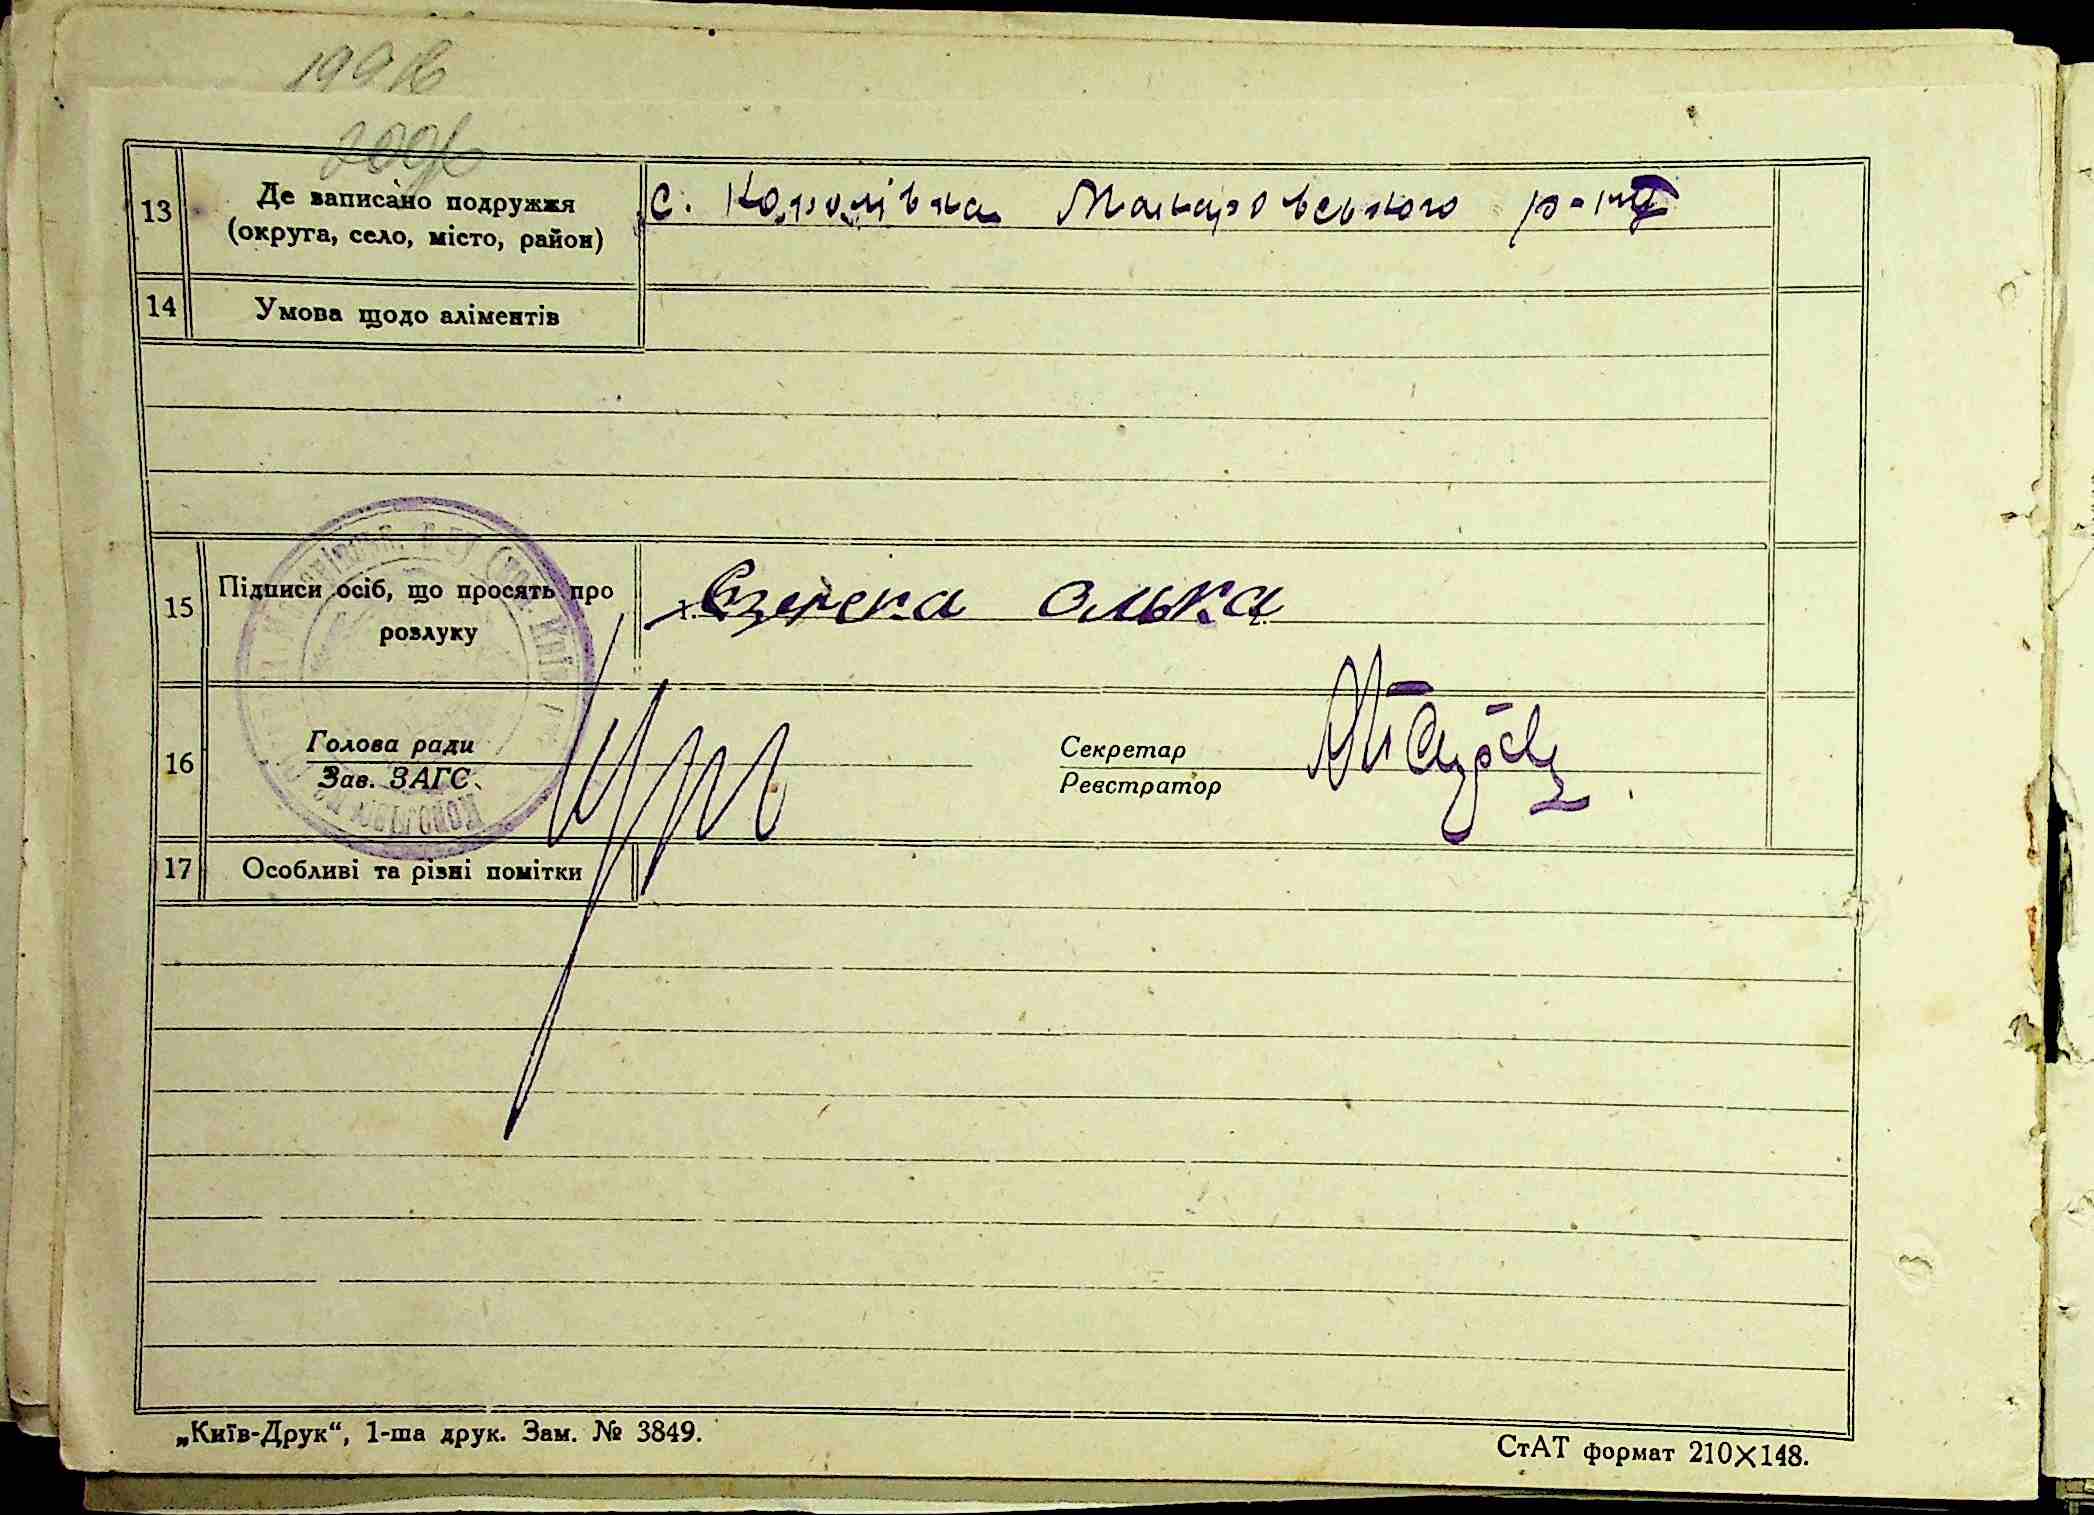 199 зв
200 зв
13
Де записано подружжя
(округа, село, місто, район)
с. Королівка Макаровського р-ну
14
Умова щодо аліментів
15
Підписи осіб, що просять про
розлуку
1.
Олька
16
Голова ради
Зав. ЗАГС
Секретар
Реєстратор
17
Особливі та різні помітки
„Київ-Друк“, 1-ша друк. Зам. № 3849.
СтАТ формат 210×148.